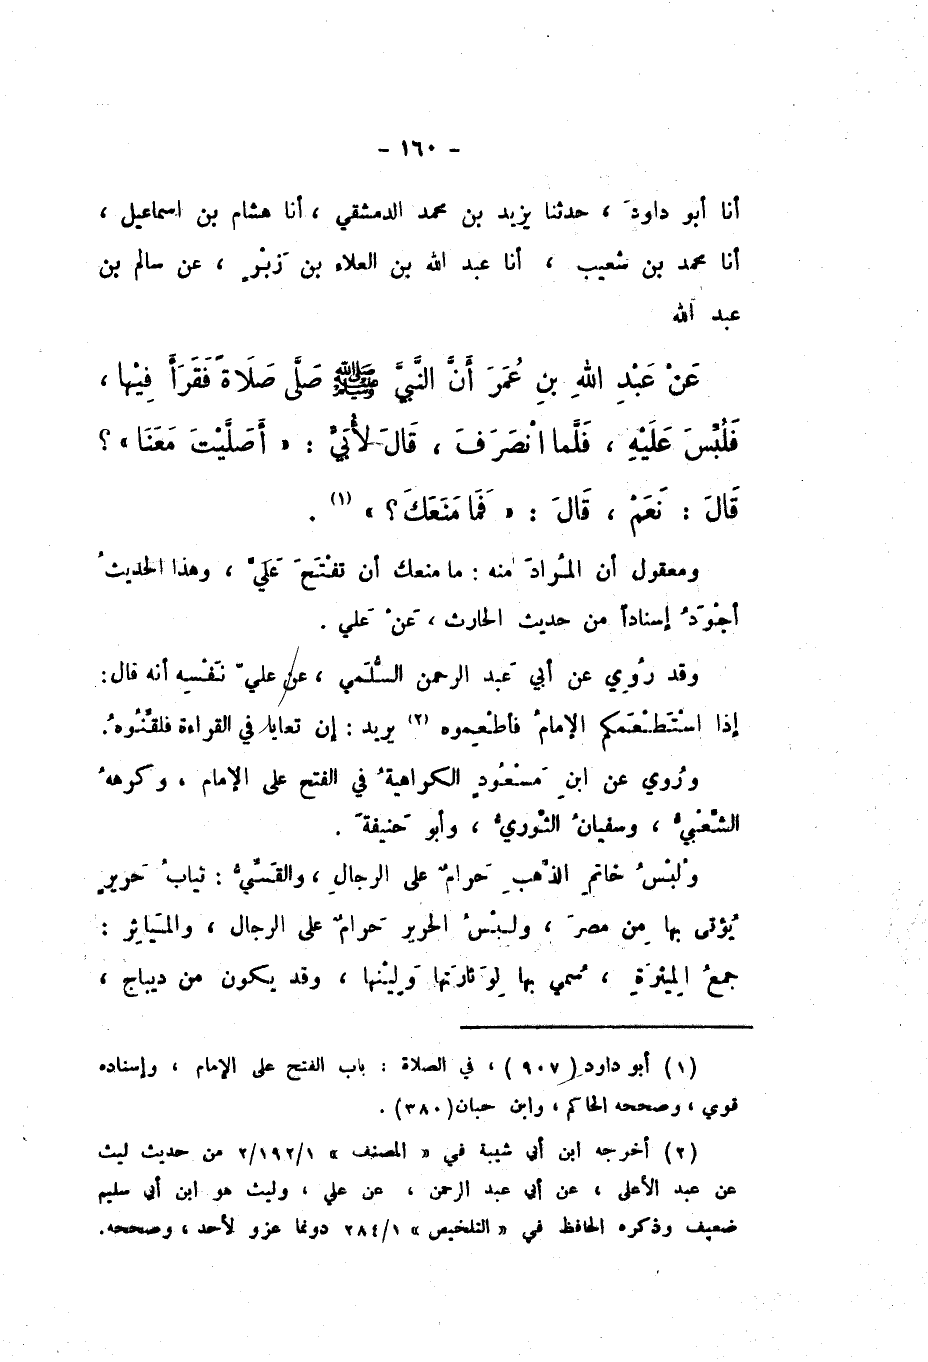 - ١٦٠ -
أنا أبو داودَ ، حدثنا يزيد بن محمد الدمشقي ، أنا هشام بن اسماعيل ،
أنا محمد بن شْعيب ، أنا عبد الله بن العلاء بن زَبْرٍ ، عن سالم بن
عبد الله
عَنْ عَبْدِ اللهِ بنِ عُمَرَ أَنَّ النَّبيَّ ﷺ صَلَّى صَلَاةً فَقَرَأَ فِيْها ،
فَلُبِّسَ عَلَيْهِ ، فَلَّما انْصَرَفَ ، قَالَ لأُبَيٍّ : « أَصَلَّيْتَ مَعَنَا » ؟
قَالَ : نَعَمْ ، قَالَ : « فَمَا مَنَعَكَ ؟ » (١) .
ومعقول أن المُرادَ منه : ما منعك أن تفْتَحَ عَلَيَّ ، وهذا الحديثُ
أجْوَدُ إسناداً من حديث الحارث ، عَنْ عَلي .
وقد رُوِي عن أبي عَبد الرحمن السُّلَمي ، عن عليّ نَفْسِه أنه قال :
إذا اسْتَطْعَمَكم الإمامُ فأطْعِموه (٢) يريد : إن تعايا في القراءة فلقِّنُوهُ .
ورُوي عن ابنِ مَسْعُودٍ الكراهيةُ في الفتح على الإمام ، وكرههُ
الشَّعْبيُّ ، وسفيانُ الثوريُّ ، وأبو حَنيفةَ .
ولْبْسُ خاتمِ الذَّهبِ حَرامٌ على الرجالِ ، والقَسِّيُّ : ثيابُ حَريرٍ
يُؤتى بها مِن مصرَ ، ولبْسُ الحرير حَرامٌ على الرجال ، والمَيَاثِر :
جمعُ المِيثرَةِ ، سُمي بها لِوَثارَتها وَلِيْنها ، وقد يكون من ديباج ،
(١) أبو داود ( ٩٠٧ ) ، في الصلاة : باب الفتح على الإمام ، وإسناده
قوي ، وصححه الحاكم ، وابن حبان (٣٨٠) .
(٢) أخرجه ابن أبي شيبة في « المصنف » ٢/١٩٢/١ من حديث ليث
عن عبد الأعلى ، عن أبي عبد الرحمن ، عن علي ، وليث هو ابن أبي سليم
ضعيف وذكره الحافظ في « التلخيص » ٢٨٤/١ دونما عزو لأحد ، وصححه .